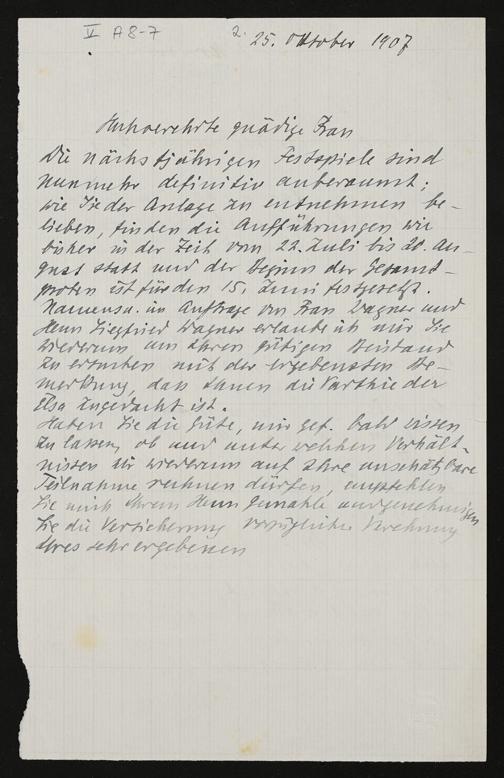 V A 8-7
2. 25. Oktober 1907
Hochverehrte gnädige Frau
Die nächstjährigen Festspiele sind
nunmehr definitiv anberaumt;
wie Sie der Anlage zu entnehmen be-
lieben, finden die Aufführungen wie
bisher in der Zeit vom 22. Juli bis 20. Au-
gust statt und der Beginn der Gesamt-
proben ist für den 15. Juni festgesetzt.
Namens u. im Auftrage von Frau Wagner und
Herrn Siegfried Wagner erlaube ich mir Sie
wiederum um Ihren gütigen Beistand
zu ersuchen mit der ergebensten Be-
merkung, dass Ihnen die Parthie der
Elsa zugedacht ist.
Haben Sie die Güte, mir gef. bald wissen
zu lassen, ob und unter welchen Verhält-
nissen wir wiederum auf Ihre unschätzbare
Teilnahme rechnen dürfen, empfehlen
Sie mich Ihrem Herrn Gemahle und genehmigen
Sie die Versicherung vorzüglicher Verehrung
Ihres sehr ergebenen